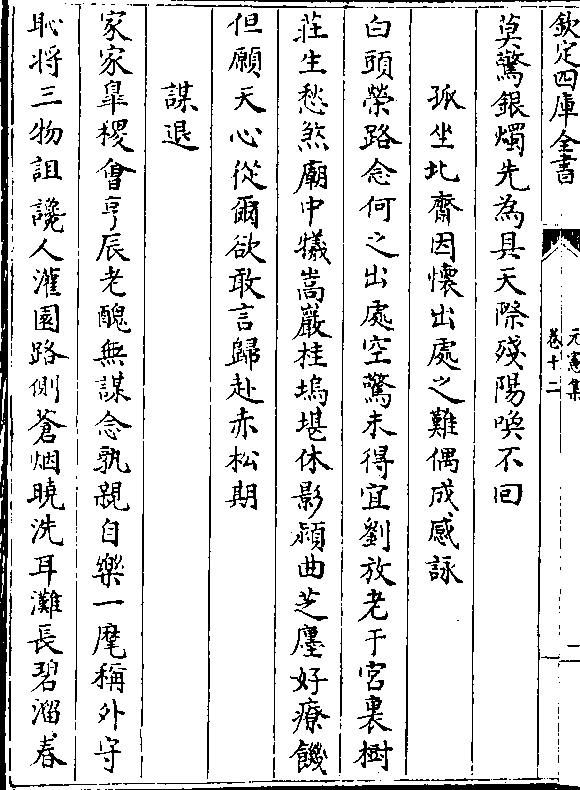 欽定四庫全書
元憲集
卷十二
莫驚銀燭先為具天際殘陽喚不回
孤坐北齋因懷出處之難偶成感詠
白頭榮路念何之出處空驚未得宜劉放老于宮裏樹
莊生愁煞廟中犧嵩巖桂塢堪休影潁曲芝廛好療饑
但願天心從爾欲敢言歸赴赤松期
謀退
家家臯稷會亨辰老醜無謀念孰親自樂一麾稱外守
恥將三物詛讒人灌園路側蒼烟曉洗耳灘長碧溜春